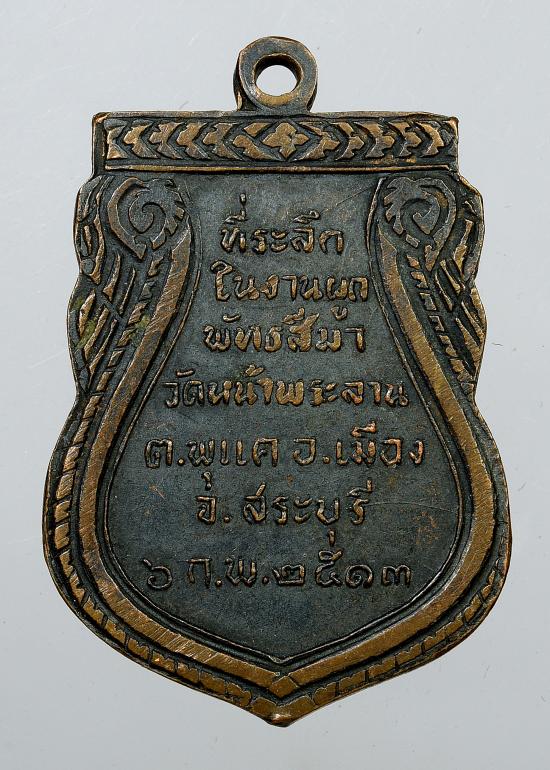 ที่ระลึก
ในงานผูก
พัทธสีมา
วัดหน้าพระลาน
ต.พุแค อ.เมือง
จ.สระบุรี
๖ ก.พ.๒๕๑๓